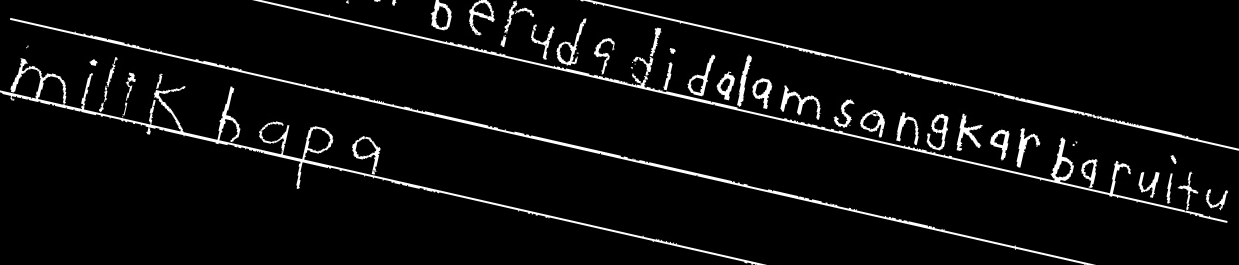 beruda di dalam sangkar baru itu
milik bapa